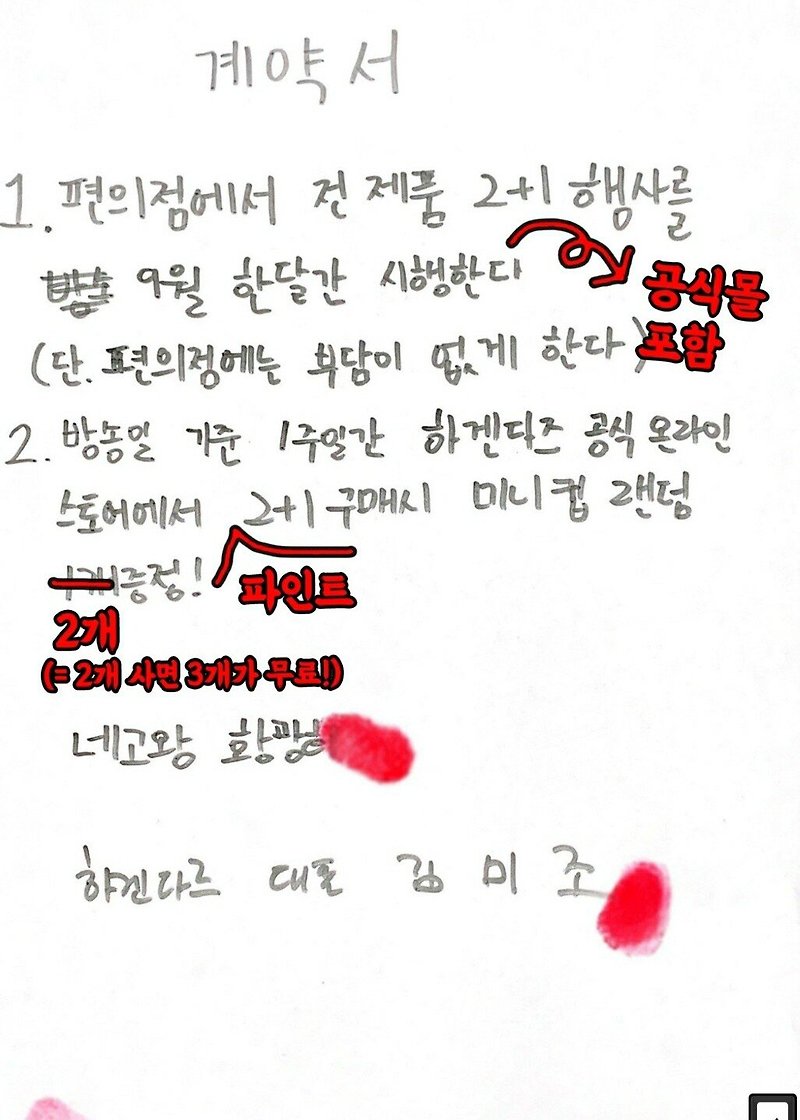 계약서
1. 편의점에서 전 제품 2+1 행사를
9월 한달간 시행한다
공식몰
포함
(단. 편의점에는 부담이 없게 한다)
2. 방송일 기준 1주일간 하겐다즈 공식 온라인
스토어에서 2+1 구매시 미니컵 랜덤
파인트
1개 증정!
2개
(= 2개 사면 3개가 무료!)
네고왕 황광희
하겐다즈 대표 김미조